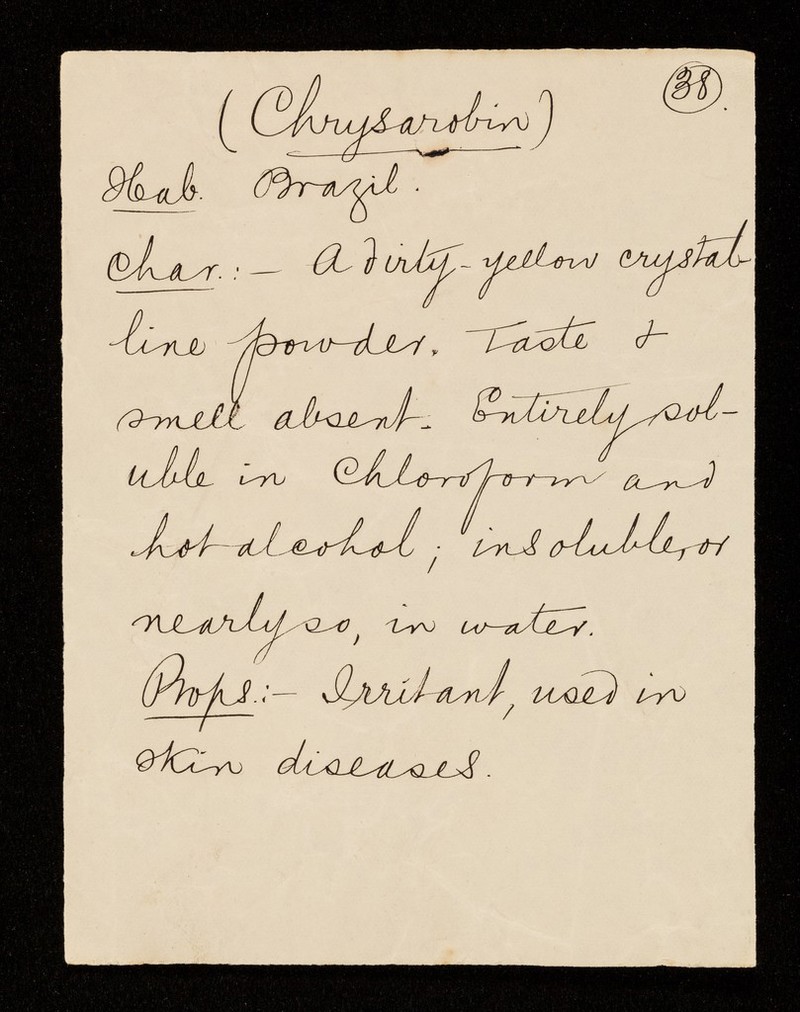 38.
(Chrysarobin)
Hab. Brazil.
Char.:— A dirty-yellow crystal-
line powder. Taste &
smell absent. Entirely sol-
uble in Chloroform and
hot alcohol; insoluble, or
nearly so, in water.
Props.:— Irritant, used in
skin diseases.